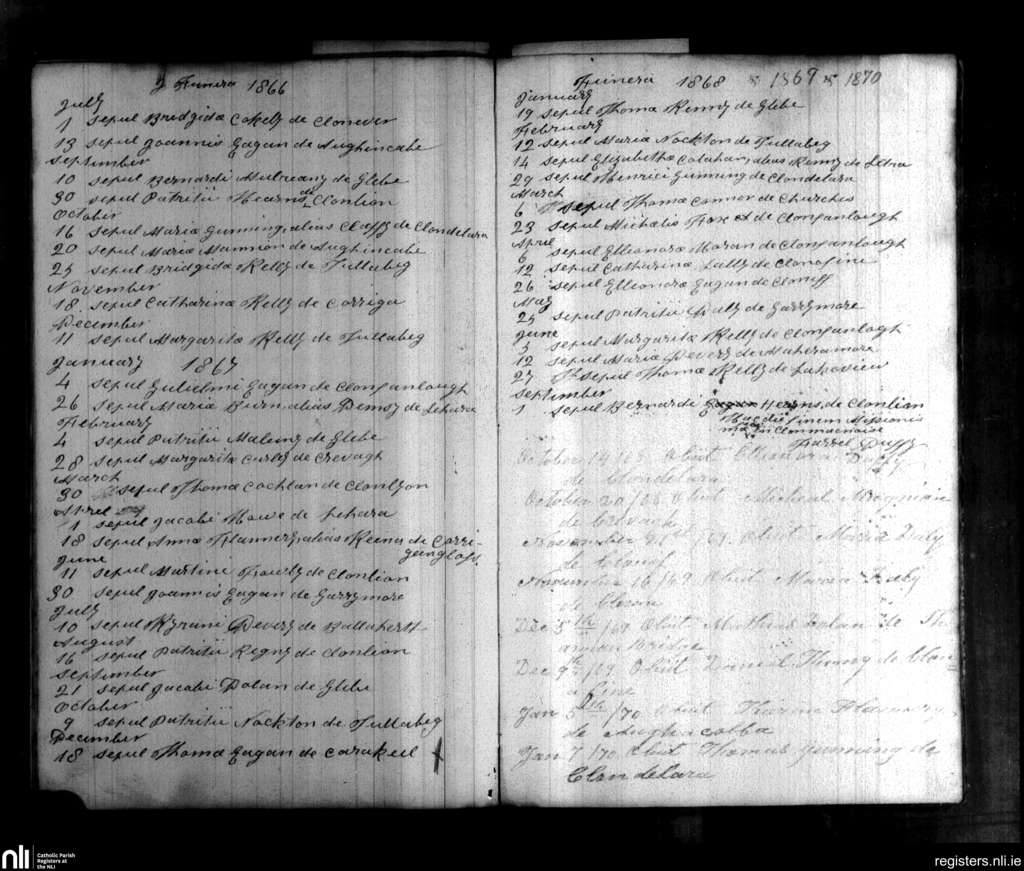 Funera 1866
July
1 Sepul Bridgidæ Cokely de Clonever
13 Sepul Joannis Eagan de Aughincabe
September
10 Sepul Bernardi Mulreany de Glebe
30 Sepul Patritii Hearns de Clonlion
October
16 Sepul Maria Gunning, alias Claffy de Clondelara
20 Sepul Maria Mannion de Aughincabe
25 Sepul Bridgidæ Kelly de Tullabeg
November
18 Sepul Catharinæ Kelly de Corriga
December
11 Sepul Margaritæ Kelly de Tullabeg
January 1867
4 Sepul Gulielmi Eagan de Clonfanlough
26 Sepul Maria Burn, alias Demsy de Lehara
February
4 Sepul Patritii Maleny de Glebe
28 Sepul Margaritæ Curly de Crevagh
March
30 Sepul Thomæ Coghlan de Clonlyon
April
1 Sepul Jacobi Howe de Lehara
18 Sepul Annæ Flannery, alias Keena de Corri-
June
11 Sepul Martini de Clonlion
30 Sepul Joannis Eagan de Garrymore
July
10 Sepul Kyrani Devery de
August
16 Sepul Patritii Regny de Clonlion
September
21 Sepul Jacobi Dolan de Glebe
October
9 Sepul Patritii Nockton de Tullabeg
December
18 Sepul Thomæ Eagan de Carakeil
Funera 1868 & 1869 & 1870
January
19 Sepul Thomæ Kenny de Glebe
February
12 Sepul Maria Nockton de Tullabeg
14 Sepul Elizabethæ Calahan, alias Kenny de
29 Sepul Henrici Gunning de Clondelara
March
6 Sepul Thomæ Connor de Churches
23 Sepul Michalis Fox et de Clonfanlough
April
6 Sepul Elleanora Moran de Clonfanlough
12 Sepul Catharinæ Lally de Clonafine
26 Sepul Elleonora Eagan de Cloniff
May
25 Sepul Patritii Daly de Garrymore
June
5 Sepul Margaritæ Kelly de Clonfanlogh
12 Sepul Maria Devery de Maheramore
27 Sepul Thomæ Kelly de
September
1 Sepul Bernardi Herins, de Clonlion
Hac die finem Missionis
in Clonmacnoise
Farrel Duffy
October 14/68 Obiit Elleanora Daly
de Clondelara
October 20/68 Obiit Michael
de Crevagh
November /69 Obiit Maria Daly
de Clonof
November 16/69 Obiit Maria Daly
de Cloon
Dec 5th/69 Obiit Mathias Dolan de
Bridge
Dec 9th/69 Obiit Daniel de Clon
a fine
Jan 5th/70 Obiit Flannery
de
Jan 7/70 Obiit Thomas Gunning de
Clondelara
nli
Catholic Parish
Registers at
the NLI
registers.nli.ie